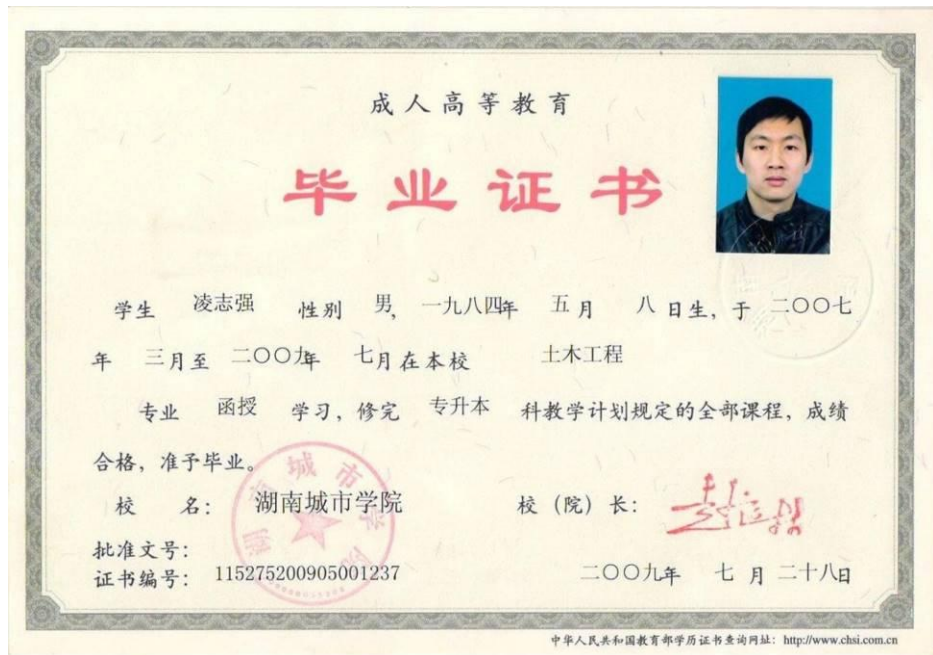 成人高等教育
毕业证书
学生 凌志强 性别 男, 一九八四年 五月 八日生, 于 二〇〇七
年 三月至 二〇〇九年 七月在本校 土木工程
专业 函授 学习, 修完 专升本 科教学计划规定的全部课程, 成绩
合格, 准予毕业。
校 名: 湖南城市学院 校 (院) 长:
批准文号:
证书编号: 115275200905001237 二〇〇九年 七月 二十八日
湖南城市学院
中华人民共和国教育部学历证书查询网址: http://www.chsi.com.cn